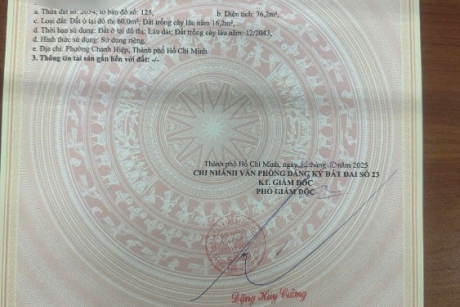 a. Thửa đất số: 2054, tờ bản đồ số: 125, b. Diện tích: 76,2m²,
c. Loại đất: Đất ở tại đô thị 60.0m²; Đất trồng cây lâu năm 16,2m²,
d. Thời hạn sử dụng: Đất ở tại đô thị: Lâu dài; Đất trồng cây lâu năm: 12/2043,
đ. Hình thức sử dụng: Sử dụng riêng,
e. Địa chỉ: Phường Chánh Hiệp, Thành phố Hồ Chí Minh.
3. Thông tin tài sản gắn liền với đất: -/-
Thành phố Hồ Chí Minh, ngày tháng năm 2025
CHI NHÁNH VĂN PHÒNG ĐĂNG KÝ ĐẤT ĐAI SỐ 23
KT. GIÁM ĐỐC
PHÓ GIÁM ĐỐC
Đặng Huy Cường